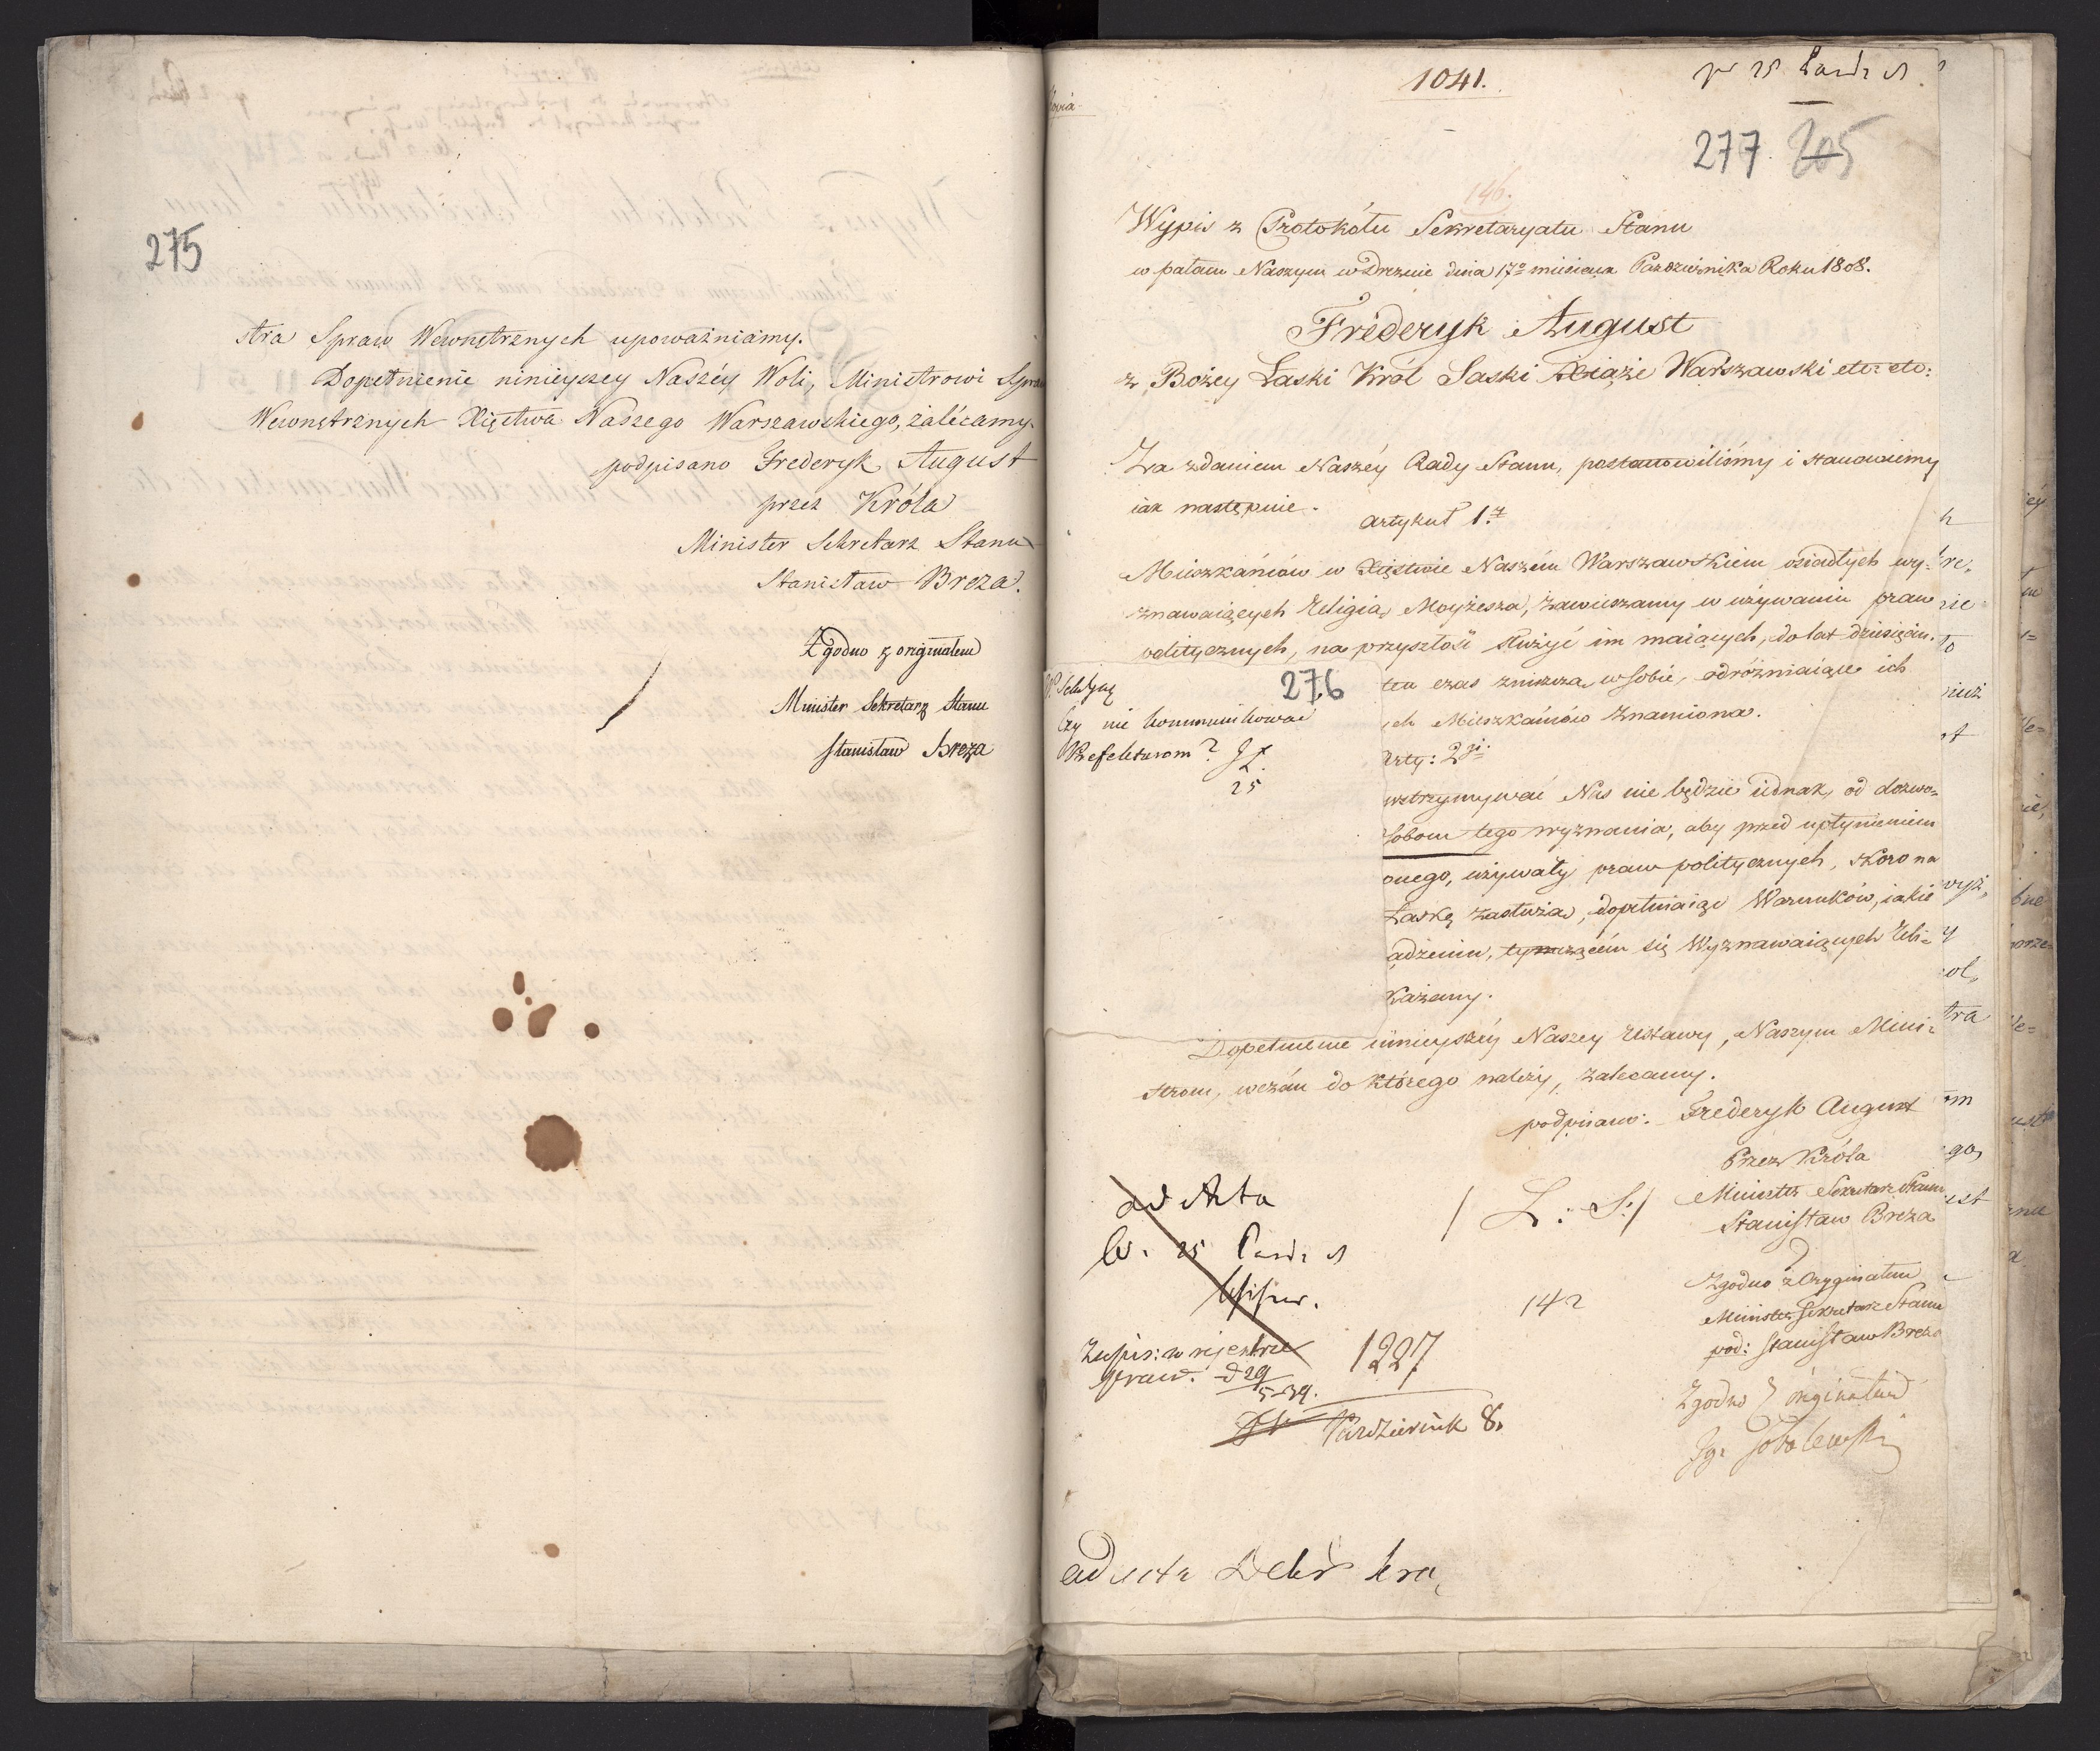 275
stra Spraw Wewnętrznych upoważniamy.
Dopełnienie ninieyszey Naszéy Woli, Ministrowi Spraw
Wewnętrznych Xięstwa Naszego Warszawskiego, zalécamy.
podpisano Frederyk August
przez Króla
Minister Sekretarz Stanu
Stanisław Breza.
Zgodno z originałem
Minister Sekretarz Stanu
Stanisław Breza
1041.
277. 205
146.
Wypis z Protokółu Sekretaryatu Stanu
w pałacu Naszym w Dreznie dnia 17º miesiąca Pazdziernika Roku 1808.
Frederyk August
z Bożey Łaski Król Saski Xiąże Warszawski etc: etc:
Za zdaniem Naszéy Rady Stanu, postanowiliśmy i stanowiemy
iak następuie.
Artykuł 1.
Mieszkańców w Xięstwie Naszém Warszawskiem osiadłych wy-
znawaiących Religią Moyżesza, zawieszamy w używaniu praw
politycznych, na przyszłość służyć im maiących, do lat dziesięciu.
276
ten czas zniszczą w sobie, odróżniaiące ich
ch Mieszkańców znamiona.
Czy nie kommunikować
Prefekturom?
25
Arty: 2gi.
wstrzymywać Nas nie będzie iednak, od dozwo-
sobom tego wyznania, aby przed upłynieniem
onego, używały praw politycznych, skoro na
Łaskę zasłużą, dopełniaiąc Warunków, iakie
ądzeniu, tyczącém się Wyznawaiących Reli-
każemy.
Dopełnienie ninieyszéy Naszey Ustawy, Naszym Mini-
strom, wczém do którego należy, zalecamy.
podpisano: Frederyk August
Przez Króla
Minister Sekretarz Stanu
Stanisław Breza
/ L: S: /
ad Acta
Zgodno z Oryginałem
Minister Sekretarz Stanu
pod: Stanisław Breza
142
Zapis: w rejestrze
1227
Pazdziernik 8.
Zgodno z originałem
Ign Sobolewski
ad acta